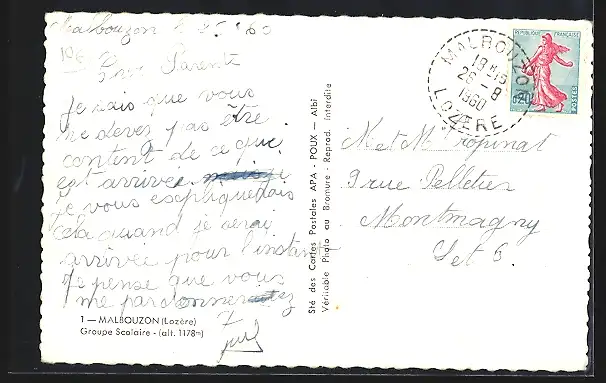 Malbouzon le 25 60
Chers Parents
Je sais que vous
ne devez pas être
content de ce que
est arrivée
je vous expliquerais
cela quand je serai
arrivée pour l'instant
Je pense que vous
me pardonnerez
1 — MALBOUZON (Lozère)
Groupe Scolaire - (alt. 1178m)
Sté des Cartes Postales APA - POUX — Albi
Véritable Photo au Bromure - Reprod. Interdite
REPUBLIQUE FRANÇAISE
0,20
POSTES
MALBOUZON
18H15
26 - 8
1960
LOZERE
M et M Tropinat
9 rue Pelletier
Montmagny
Set O.